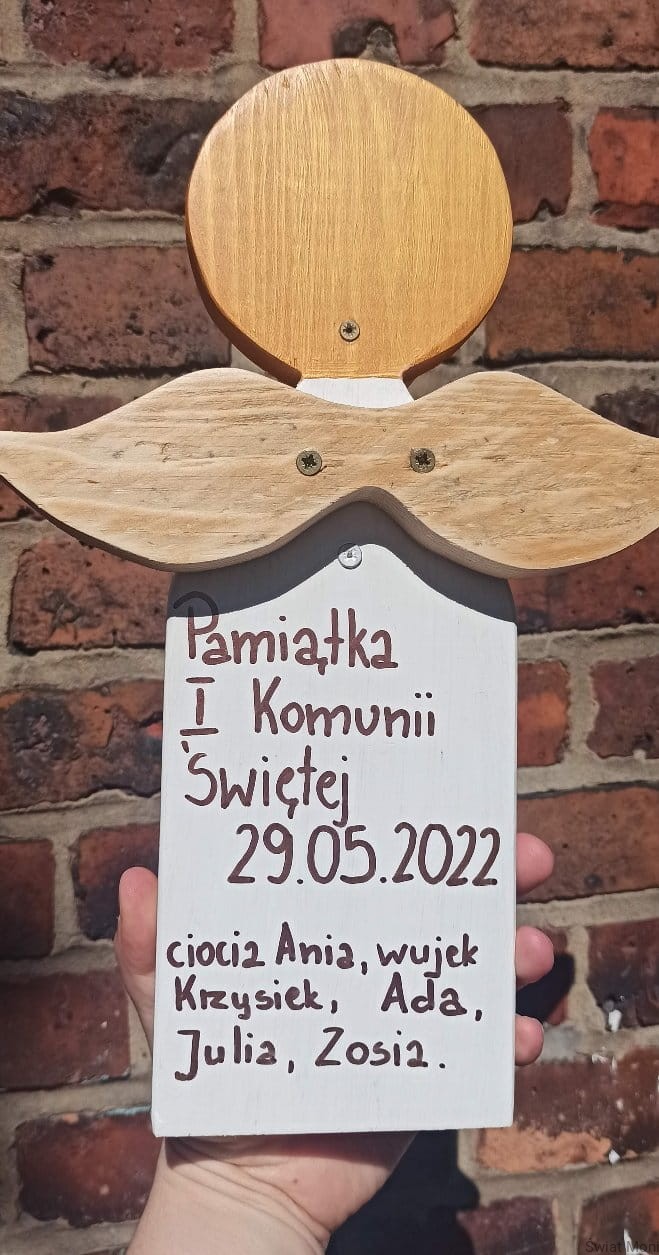 Pamiątka
I Komunii
Świętej
29.05.2022
ciocia Ania, wujek
Krzysiek, Ada,
Julia, Zosia.